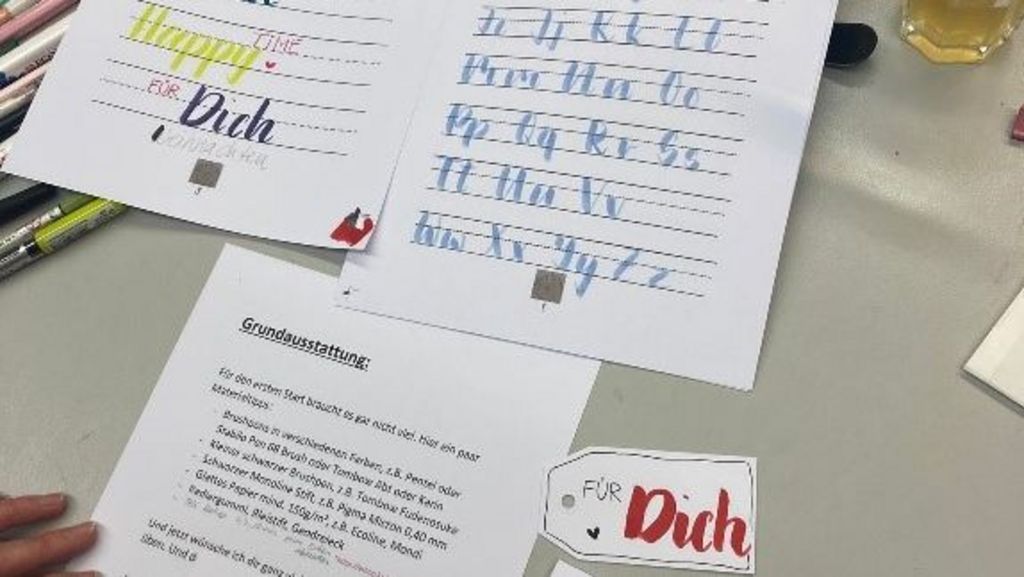 Happy TIME
FÜR Dich
Jj Kk Ll
Mm Nn Oo
Pp Qq Rr Ss
Tt Uu Vv
Ww Xx Yy Zz
Grundausstattung:
Für den ersten Start braucht es gar nicht viel. Hier ein paar
Materialtipps:
- Brushpens in verschiedenen Farben, z.B. Pentel oder
Stabilo Pen 68 Brush oder Tombow Abt oder Karin
- Kleiner schwarzer Brushpen, z.B. Tombow Fudenosuke
- Schwarzer Monoline Stift, z.B. Pigma Micron 0,40 mm
- Glattes Papier mind. 150g/m², z.B. Ecoline, Mondi
- Radiergummi, Bleistift, Geodreieck
Und jetzt wünsche ich dir ganz
üben. Und d
FÜR Dich